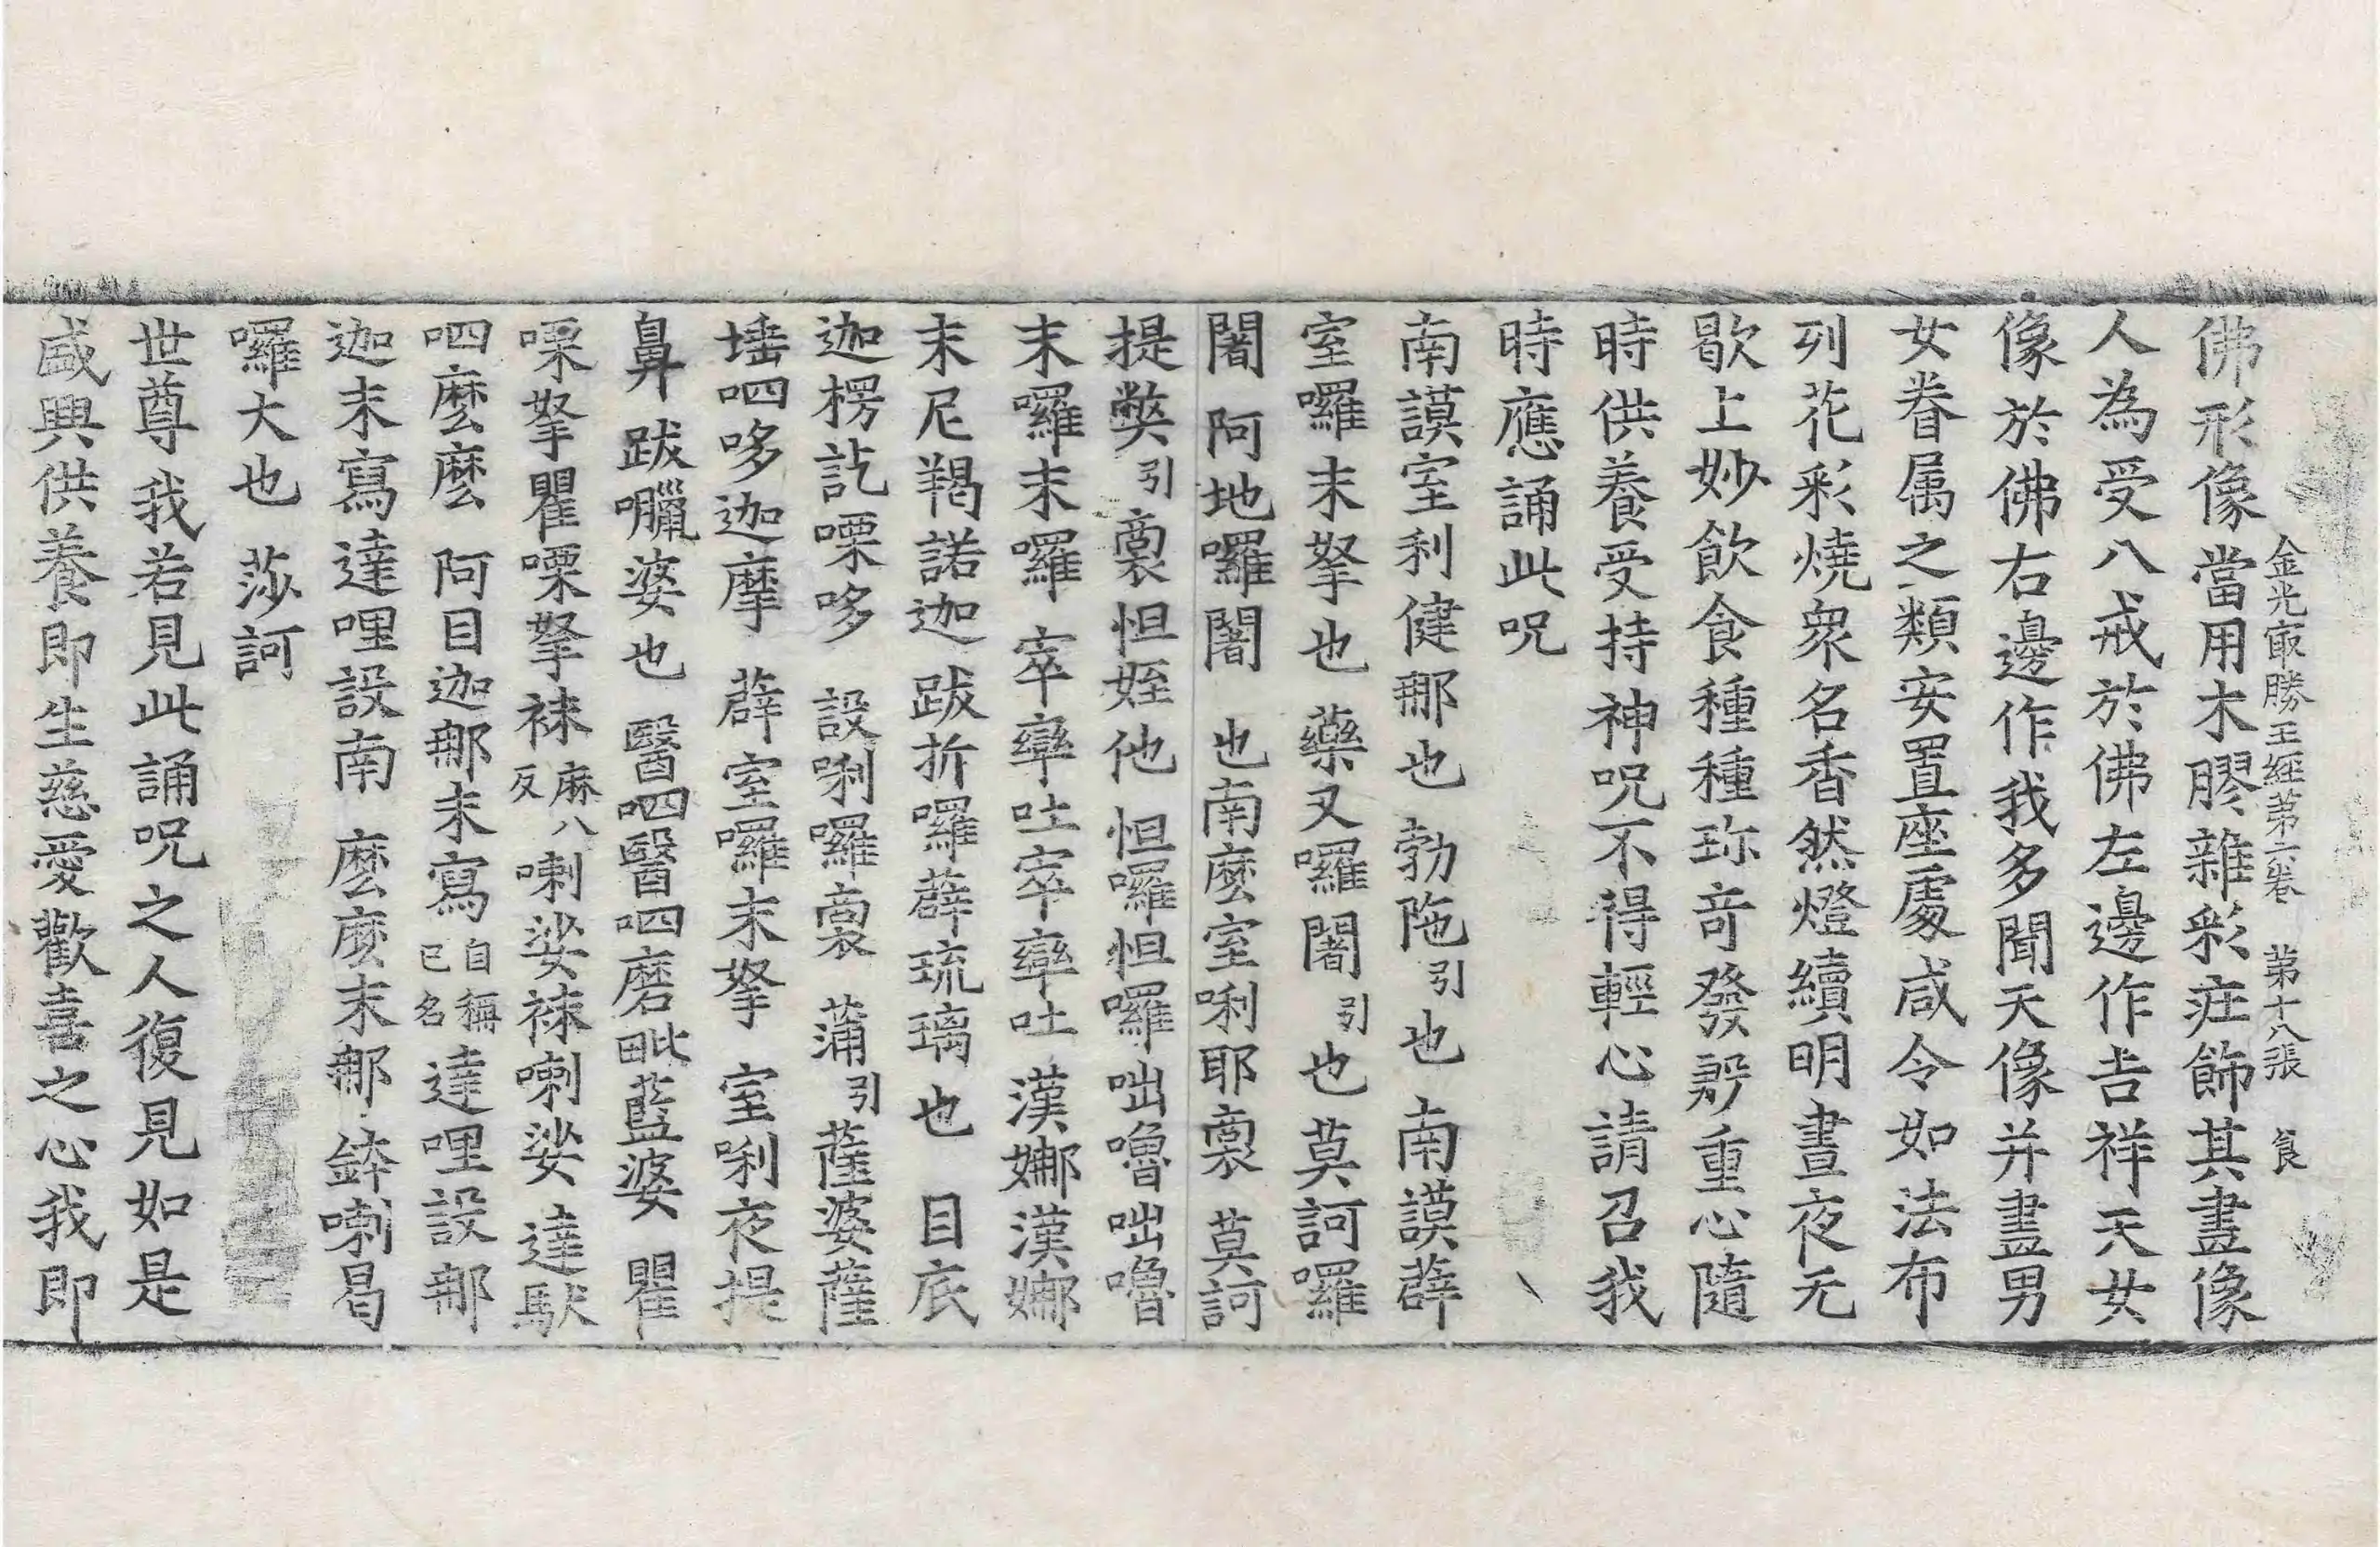 金光㝡勝王經第六卷　第十八張　食
佛形像當用木膠雜彩莊飾其畫像
人為受八戒於佛左邊作吉祥天女
像於佛右邊作我多聞天像并畫男
女眷属之類安置座處咸令如法布
列花彩燒衆名香然燈續明晝夜无
歇上妙飲食種種珎竒發㱾重心隨
時供養受持神呪不得輕心請召我
時應誦此呪
南謨室利健那也　勃陁引也　南謨薜
室囉末拏也　藥叉囉闍引也　莫訶囉
闍　阿地囉闍　也南麽室唎耶裛　莫訶
提弊引裛怛姪他　怛囉怛囉咄嚕咄嚕
末囉末囉　窣率吐窣率吐　漢娜漢娜
末尼羯諾迦　跋折囉薜琉璃也　目底
迦楞訖㗚哆　設唎囉裛　蒲引薩婆薩
埵呬哆迦摩　薜室囉末拏　室唎夜提
鼻　跋臘婆也　醫呬醫呬磨毗藍婆　瞿
㗚拏瞿㗚拏　袜麻八反喇娑袜喇娑　達馱
呬麽麽　阿目迦那末寫自稱已名達哩設那
迦末寫達哩設南　麽麽末那　鉢喇曷
囉大也　莎訶
世尊我若見此誦呪之人復見如是
盛興供養即生慈愛歡喜之心我即